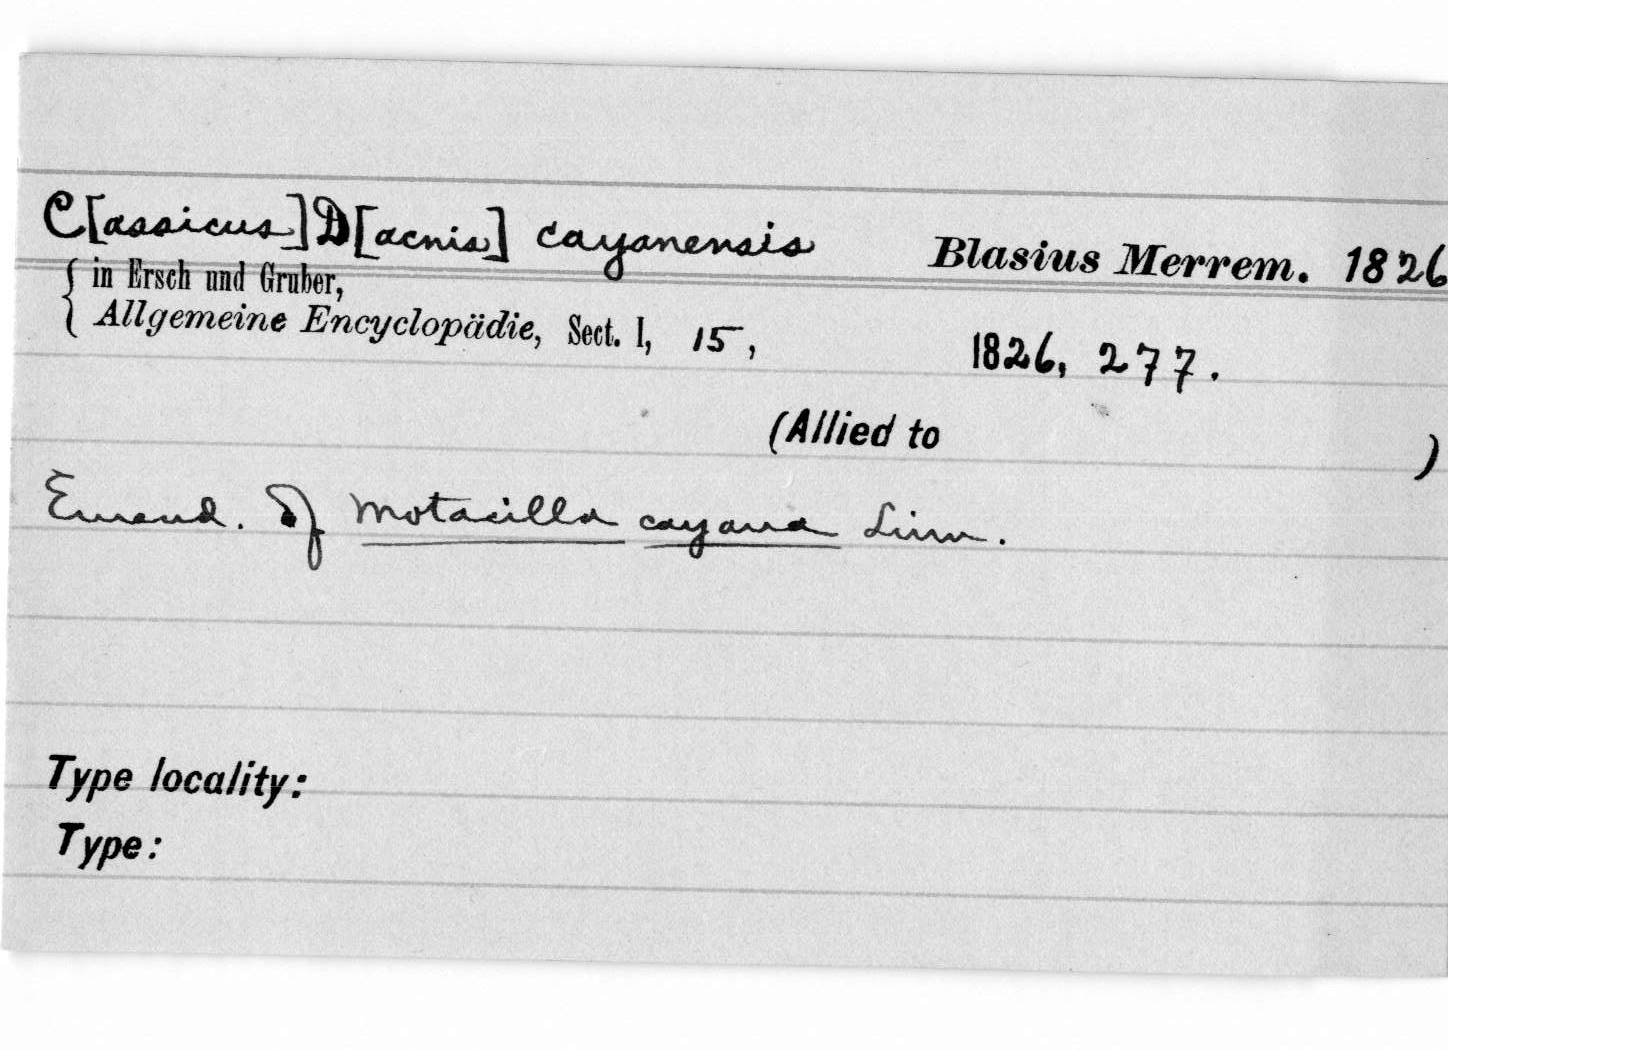 C[assicus] D[acnis] cayanensis Blasius Merrem. 1826
in Ersch und Gruber,
Allgemeine Encyclopädie, Sect. I, 15, 1826, 277.
(Allied to )
Emend. of Motacilla cayana Linn.
Type locality:
Type: